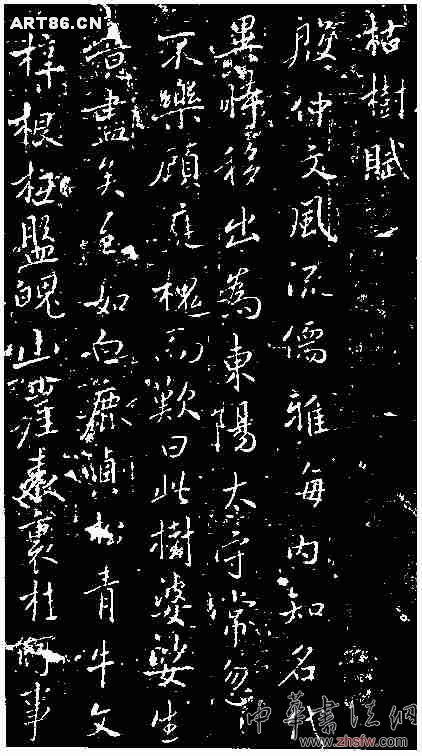 ART86.CN
枯樹賦
殷仲文風流儒雅海內知名代
異時移出為東陽太守常忽
不樂顧庭槐而歎曰此樹婆娑生
意盡矣至如白鹿貞松青牛文
梓根柢盤魄山崖表裏桂何事
中華書法網
www.zhsfw.com